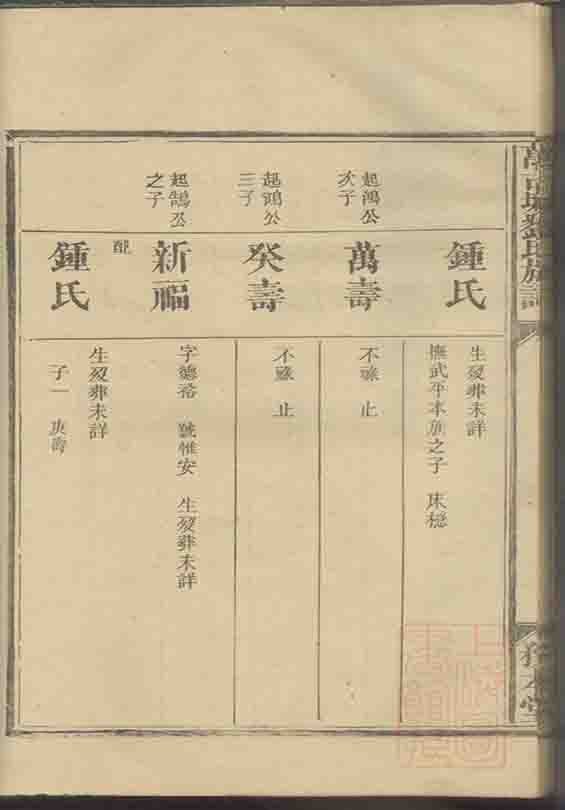 鍾氏
生歿葬未詳
撫武平本族之子
起鴻公
次子
萬壽
不祿 止
起鴻公
三子
癸壽
不祿 止
起鵠公
之子
新福
字德裕 號惟安 生歿葬未詳
配
鍾氏
生歿葬未詳
子一 庚壽